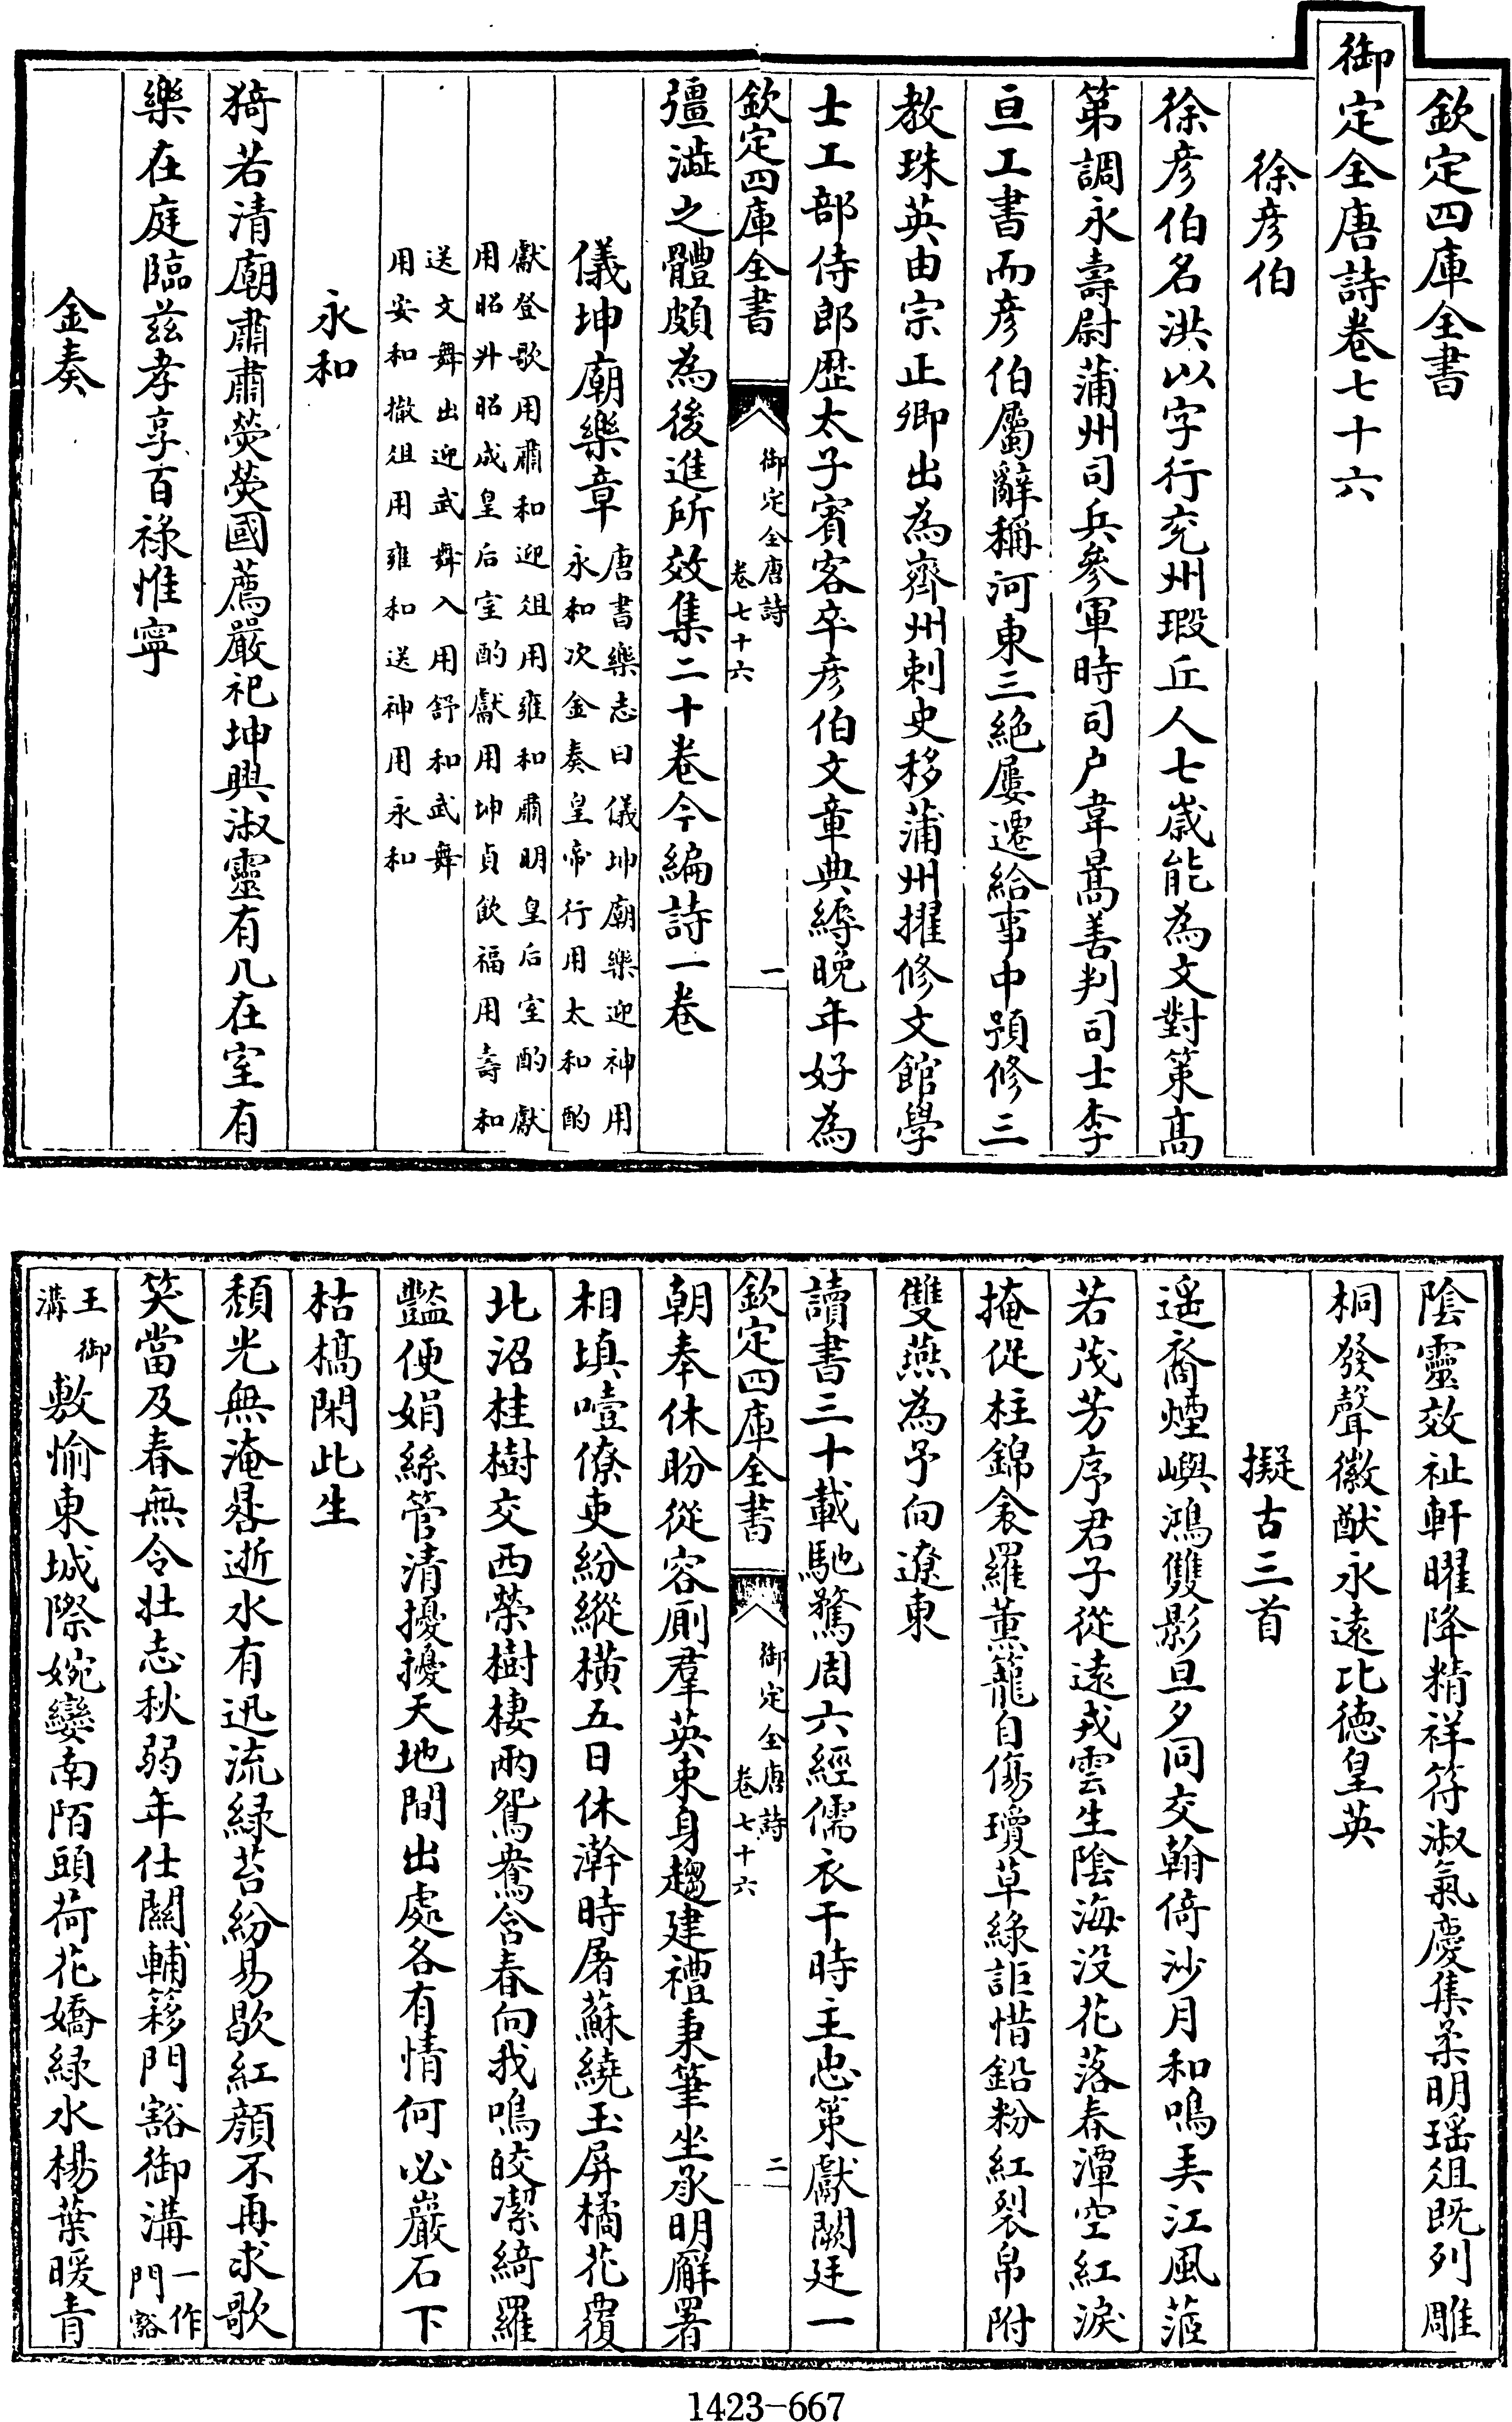 欽定四庫全書
御定全唐詩卷七十六
徐彦伯
徐彦伯名洪以字行兖州瑕丘人七歳能為文對策髙
第調永壽尉蒲州司兵參軍時司户韋暠善判司士李
亘工書而彦伯屬辭稱河東三絶屢遷給事中預修三
教珠英由宗正卿出為齊州刺史移蒲州擢修文館學
士工部侍郎歴太子賓客卒彦伯文章典縟晩年好為
欽定四庫全書
御定全唐詩
卷七十六
一
彊澁之體頗為後進所效集二十卷今編詩一卷
儀坤廟樂章
唐書樂志曰儀坤廟樂迎神用
永和次金奏皇帝行用太和酌
獻登歌用肅和迎俎用雍和肅明皇后室酌獻
用昭升昭成皇后室酌獻用坤貞飲福用壽和
送文舞出迎武舞入用舒和武舞
用安和撤俎用雍和送神用永和
永和
猗若清廟肅肅熒熒國薦嚴祀坤興淑靈有几在室有
樂在庭臨兹孝享百祿惟寧
金奏
陰靈效祉軒曜降精祥符淑氣慶集柔明瑶俎既列雕
桐發聲徽猷永逺比徳皇英
擬古三首
遥裔煙嶼鴻雙影旦夕同交翰倚沙月和鳴弄江風蒞
若茂芳序君子從逺戎雲生陰海没花落春潭空紅淚
掩促柱錦衾羅薫籠自傷瓊草緑詎惜鉛粉紅裂帛附
雙燕為予向遼東
讀書三十載馳騖周六經儒衣干時主忠策獻闕廷一
欽定四庫全書
御定全唐詩
卷七十六
二
朝奉休盼從容厠羣英束身趨建禮秉筆坐承明廨署
相填噎僚吏紛縱横五日休澣時屠蘇繞玉屏橘花覆
北沼桂樹交西榮樹棲兩鴛鴦含春向我鳴皎潔綺羅
豔便娟絲管清擾擾天地間出處各有情何必巖石下
枯槁閑此生
頽光無淹晷逝水有迅流緑苔紛易歇紅顔不再求歌
笑當及春無令壯志秋弱年仕關輔簃門豁御溝
一作
門豁
王御
溝
敷愉東城際婉孌南陌頭荷花嬌緑水楊葉暖青
1423-667